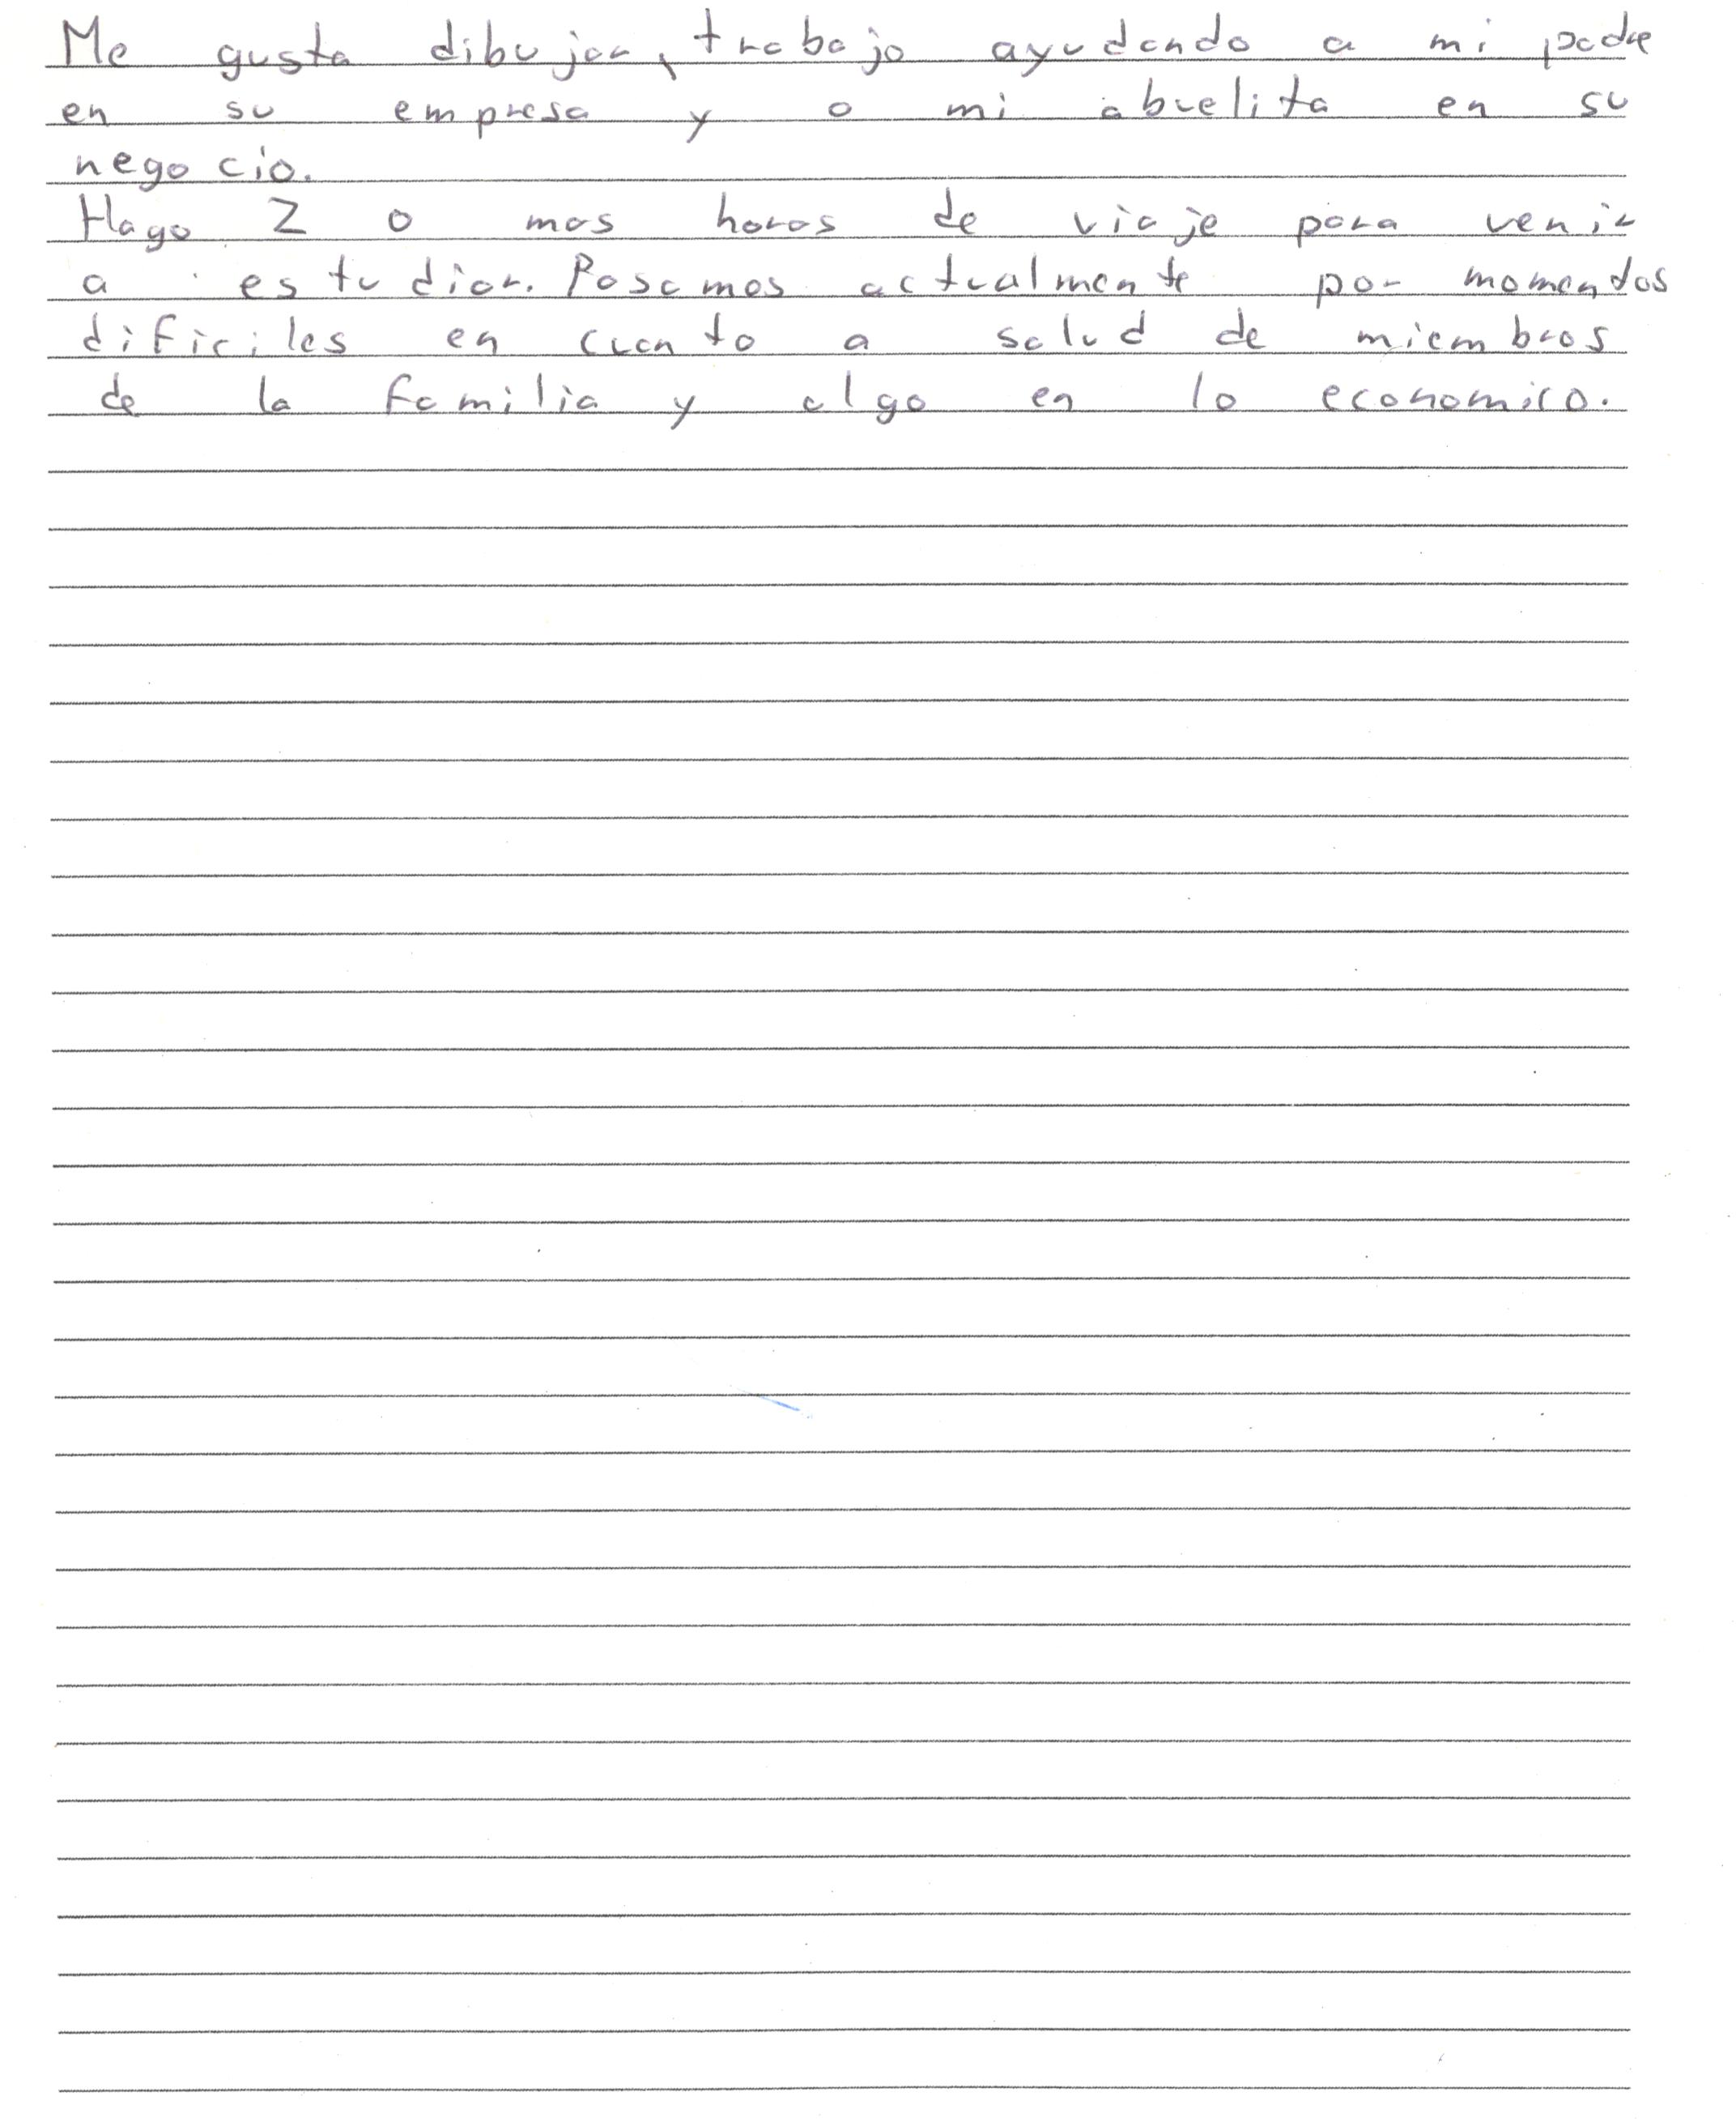 Me gusta dibujar, trabajo ayudando a mi padre
en su empresa y a mi abuelita en su
negocio.
Hago 2 o mas horas de viaje para venir
a estudiar. Pasamos actualmente por momentos
dificiles en cuanto a salud de miembros
de la familia y algo en lo economico.